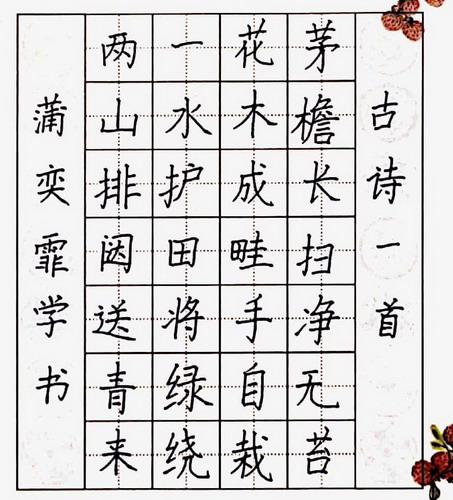 古诗一首
茅檐长扫净无苔
花木成畦手自栽
一水护田将绿绕
两山排闼送青来
蒲奕霏学书